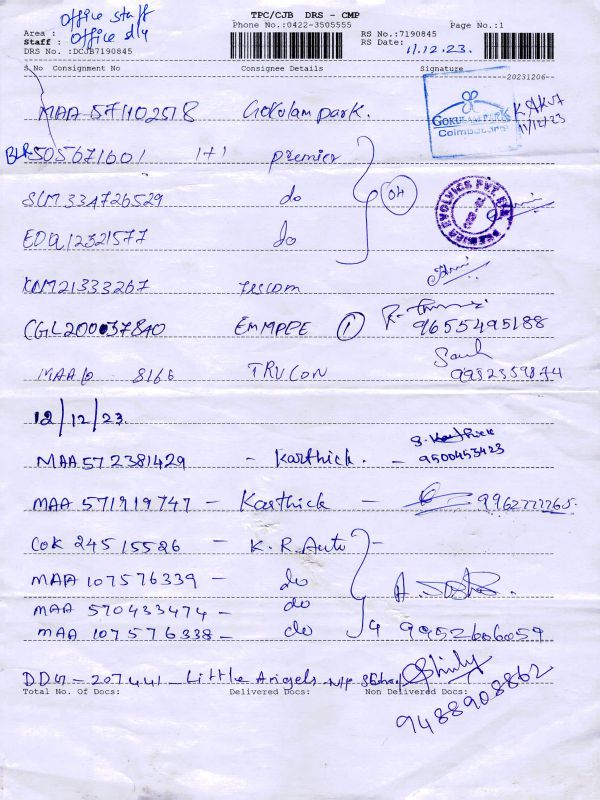 TPC/CJB DRS - CMP
Phone No.:0422-3505555
Page No.:1
Office staff
Area :
Staff : Office dly
DRS No. :DCJB7190845
RS No.:7190845
RS Date: 11.12.23.
S No Consignment No Consignee Details Signature
20231206--
MAA 571102518 Gokulam park.
GOKULAM PARK
Coimbatore
11/12/23
BLR 505671601 1+1 premier
SLM 334726529 do 04
EDQ 12321577 do
KNM21333267 rescom
CGL200037840 EMMPPE 1
9655495188
MAA 8166 TRUCON
12/12/23.
MAA 572381429 - Karthick. - S. Karthick
9500453423
MAA 571919747 - Karthick -
COK 24515526 - K.R. Auto
MAA 107576339 - do
MAA 570433474 - do
MAA 107576338 - do 4 9952606059
207441 - Little Angels
Total No. Of Docs: Delivered Docs: Non Delivered Docs:
9488908862